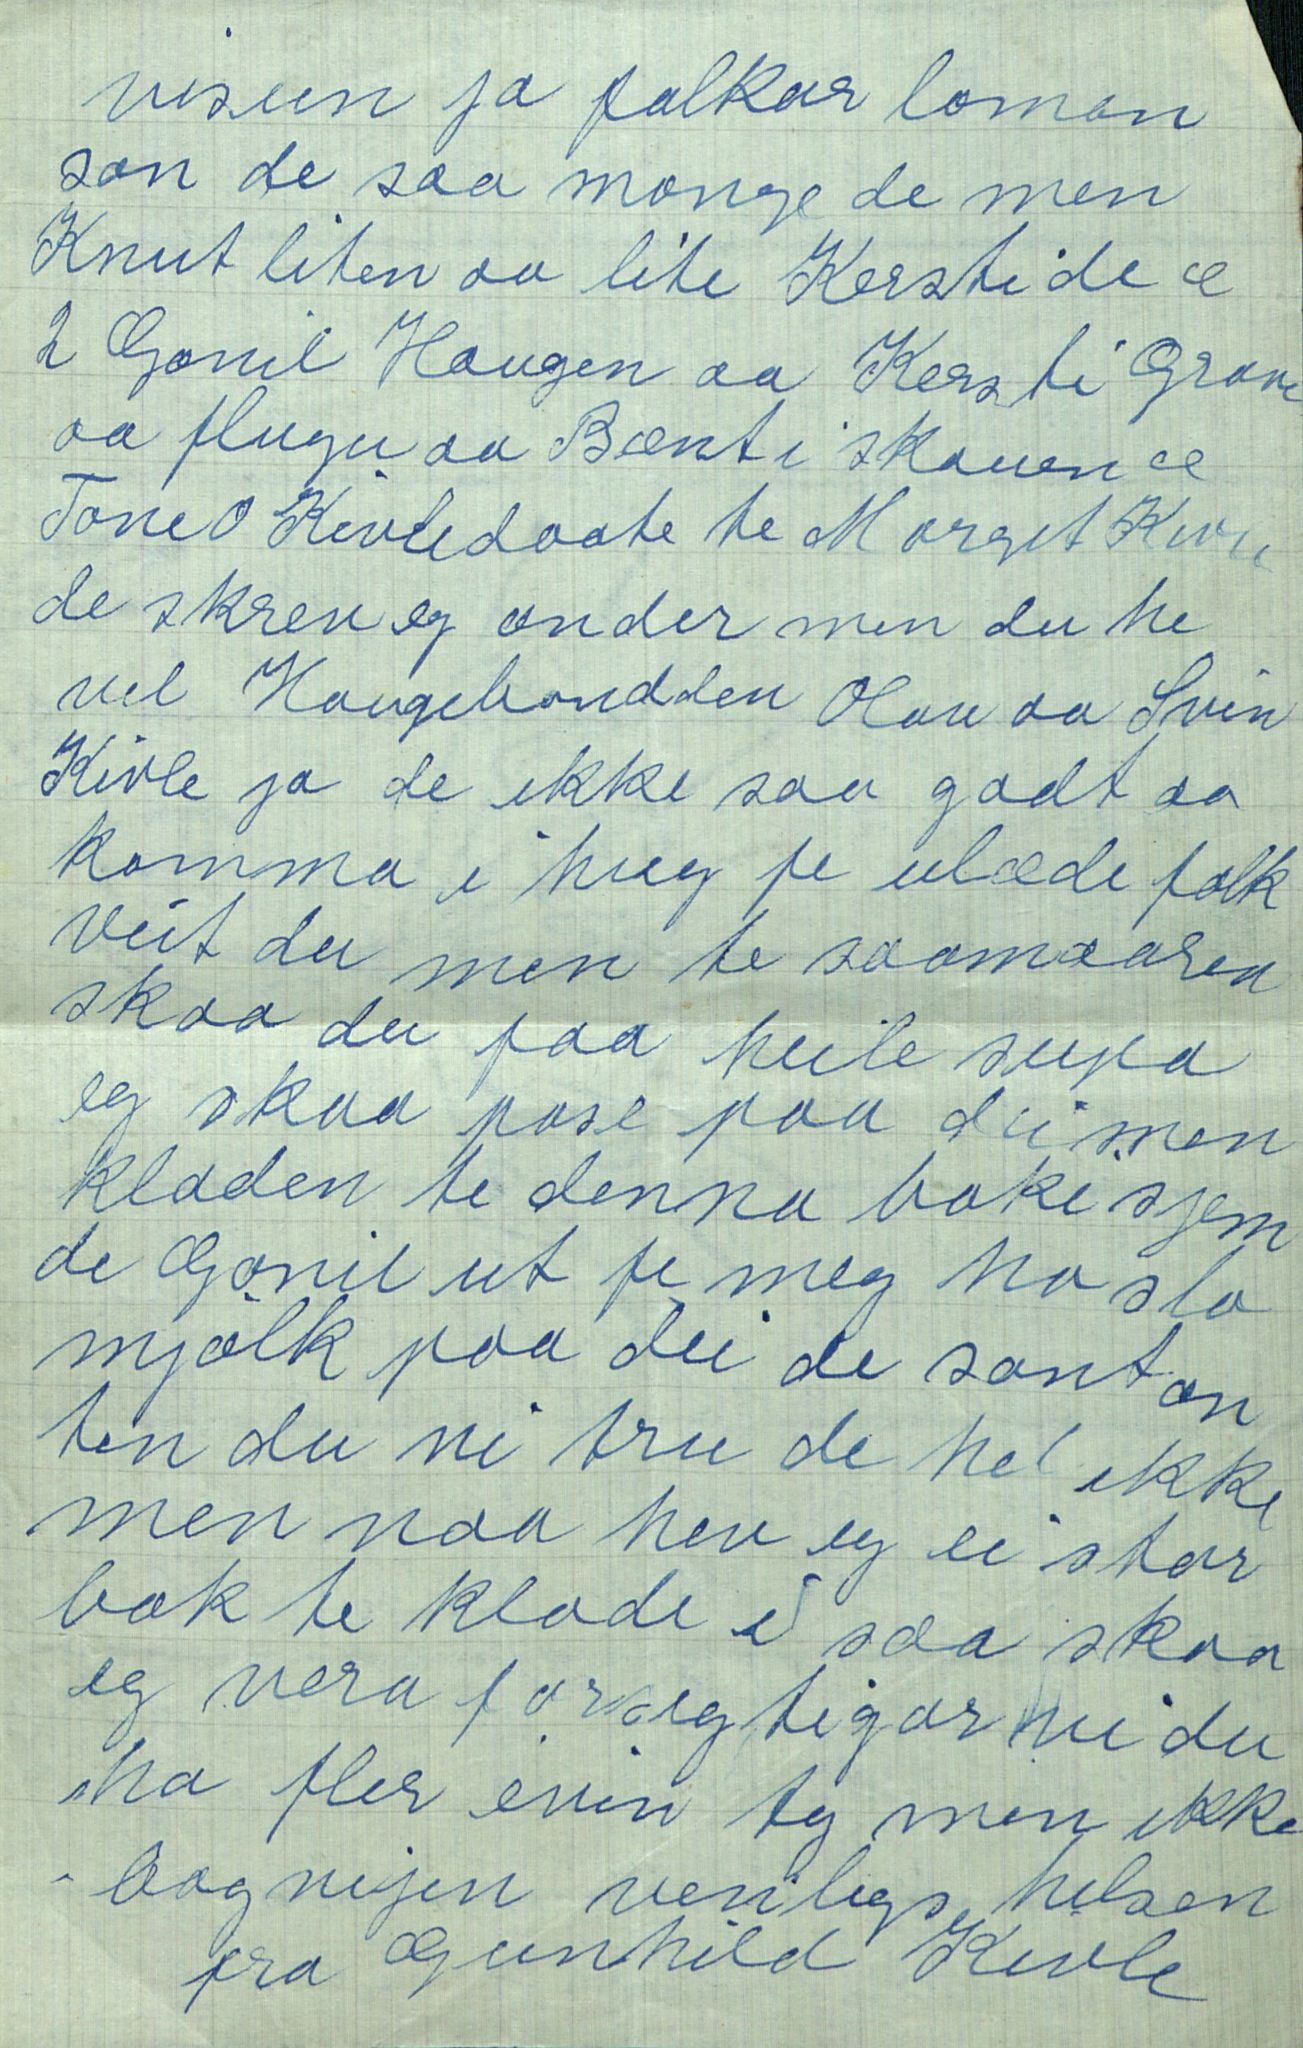 visun ja falkar loman
son de saa mange de men
Knut liten aa lite Kersti de æ
2 Gonil Haugen aa Kersti Grave
aa flugu aa Bænt i skauen æ
Tone O Kivledaate te Margit Kivle
de skrev eg onder men du he
vel Haugebondden Olav aa Svin
Kivle ja de ikke saa godt aa
komma i hug fe ulæde folk
veit du men te saamaaren
skaa du faa heile supa
eg skaa pase paa dei men
kladen te denna boke sjem
de Gonil ut fe meg ho slo
mjølk paa dei de sant on
ten du vi tru de hel ikke
men naa hev eg ei stor
bok te klade i saa skaa
eg vera forsegtigar vi du
ha fler evin ty men ikke
bog nijen venligs helsen
fra Gunhild Kivle